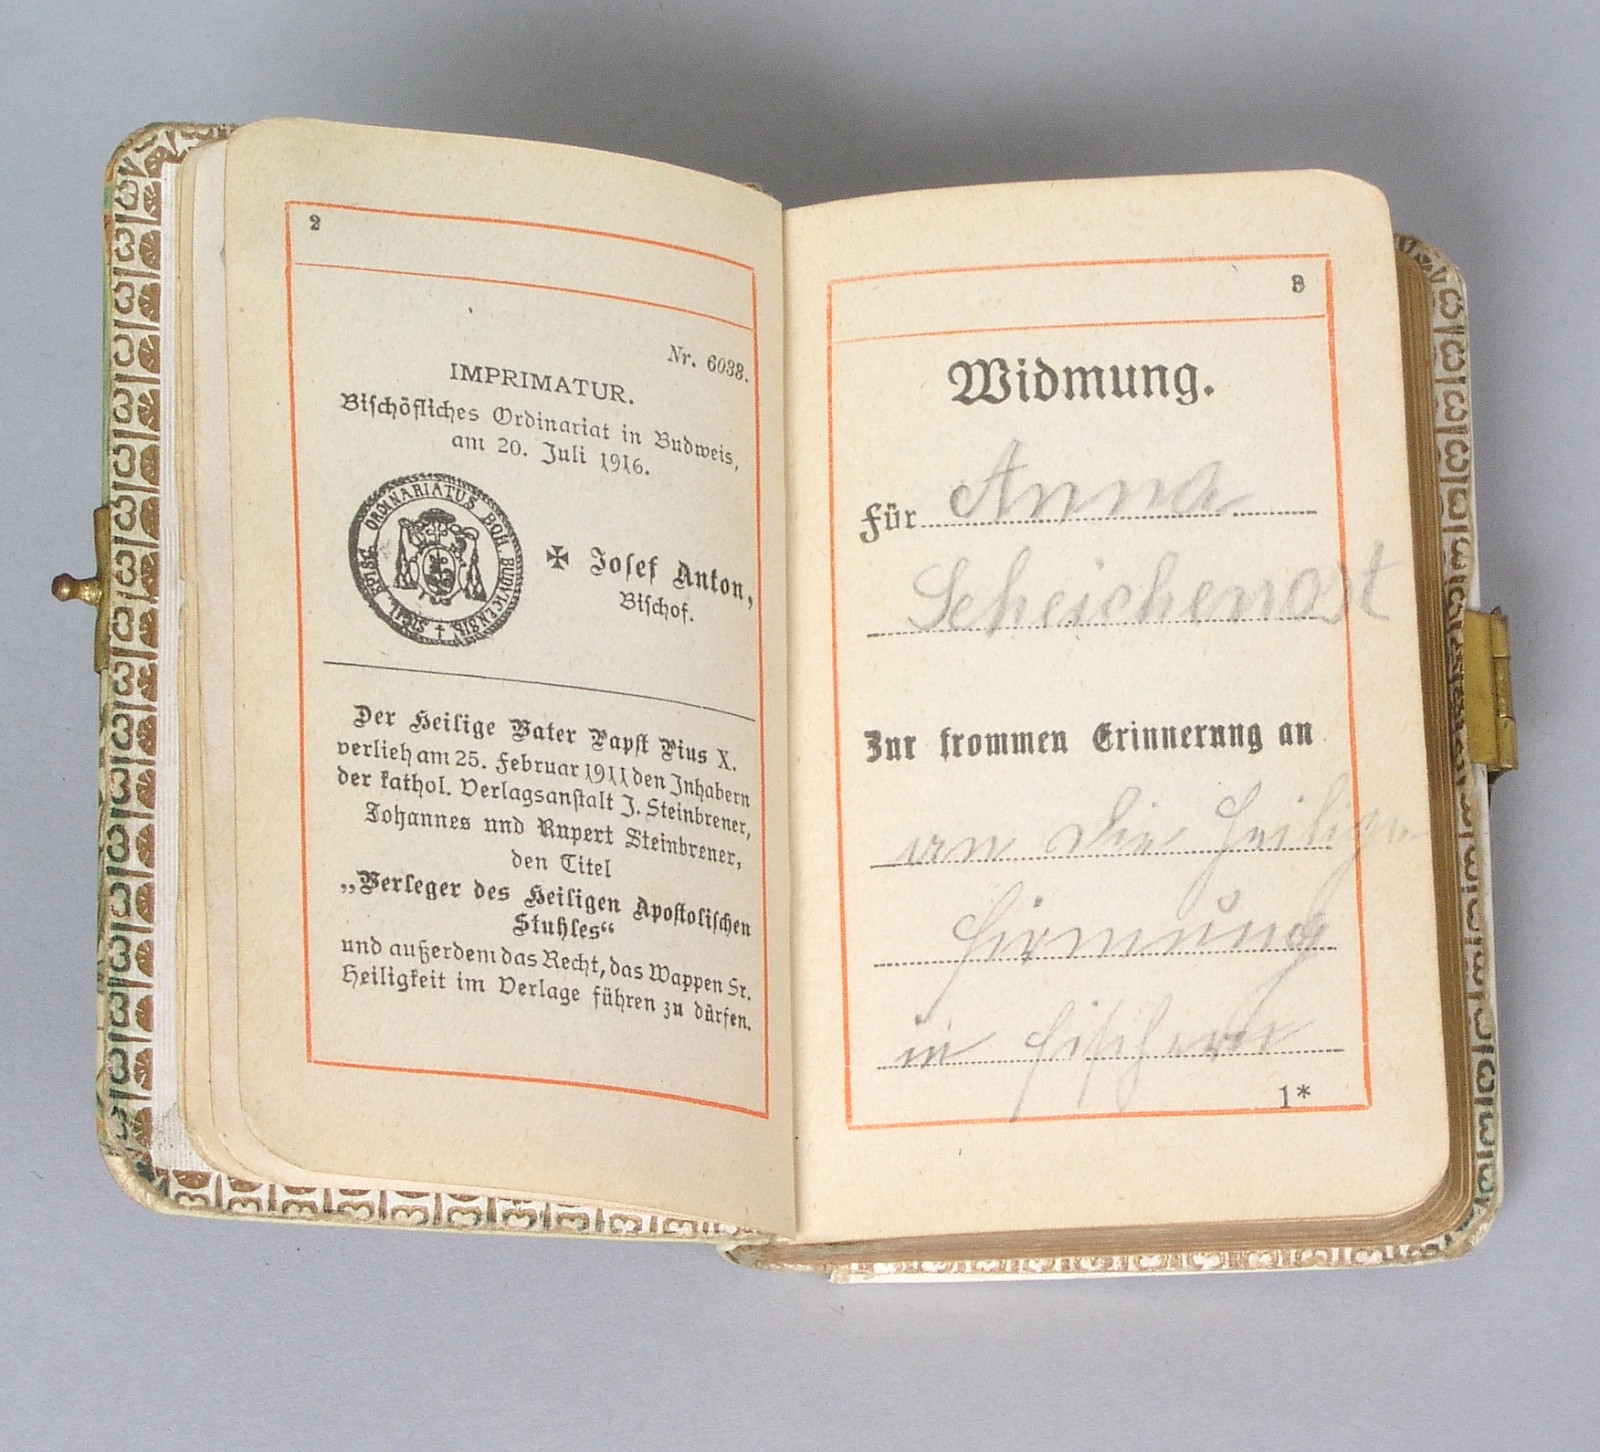 2
Nr. 6038.
IMPRIMATUR.
Bischöfliches Ordinariat in Budweis,
am 20. Juli 1916.
SIGIL. EPISC. ORDINARIATUS BOH. BUDVICENSIS
✠ Josef Anton,
Bischof.
Der Heilige Vater Papst Pius X.
verlieh am 25. Februar 1911 den Inhabern
der kathol. Verlagsanstalt J. Steinbrener,
Johannes und Rupert Steinbrener,
den Titel
„Verleger des Heiligen Apostolischen
Stuhles“
und außerdem das Recht, das Wappen Sr.
Heiligkeit im Verlage führen zu dürfen.
3
Widmung.
Für Anna
Scheichenost
Zur frommen Erinnerung an
an die Heilige
Firmung
in Fischern
1*